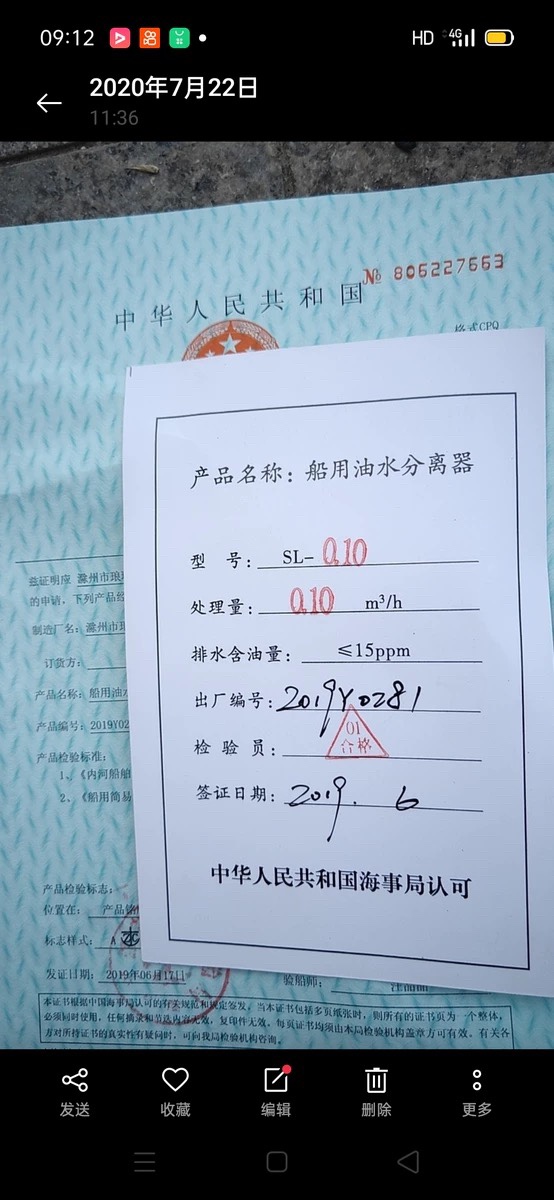 09:12
HD 4G
2020年7月22日
11:36
№ 806227663
中华人民共和国
格式CPQ
产品名称：船用油水分离器
型 号： SL-0.10
处理量： 0.10 m³/h
排水含油量： ≤15ppm
出厂编号：2019Y0281
检 验 员： 01
合格
签证日期：2019. 6
中华人民共和国海事局认可
兹证明应 滁州市琅
的申请，下列产品经
制造厂名：滁州市琅
订货方：
产品名称：船用油水
产品编号：2019Y02
产品检验标准：
1、《内河船舶
2、《船用简易
产品检验标志：
位置在： 产品铭
标志样式： A
发证日期： 2019年06月17日
验船师：
本证书根据中国海事局认可的有关规范和规定签发。当本证书包括多页纸张时，则所有的证书页为一个整体，
必须同时使用，任何摘录和节选内容无效，复印件无效。每页证书均须由本局检验机构盖章方可有效。有关各
方对所持证书的真实性有疑问时，可向我局检验机构咨询。
发送
收藏
编辑
删除
更多